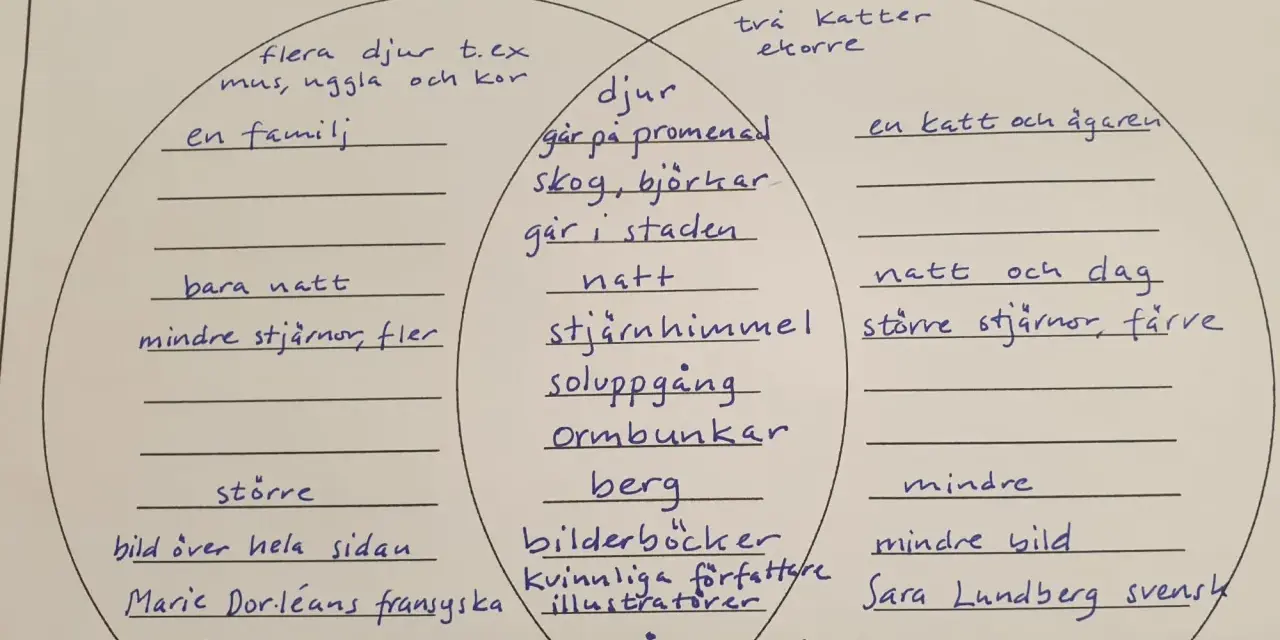 flera djur t.ex
mus, uggla och kor
en familj
bara natt
mindre stjärnor, fler
större
bild över hela sidan
Marie Dorléans fransyska
djur
går på promenad
skog, björkar
går i staden
natt
stjärnhimmel
soluppgång
ormbunkar
berg
bilderböcker
kvinnliga författare
illustratörer
två katter
ekorre
en katt och ägaren
natt och dag
större stjärnor, färre
mindre
mindre bild
Sara Lundberg svensk